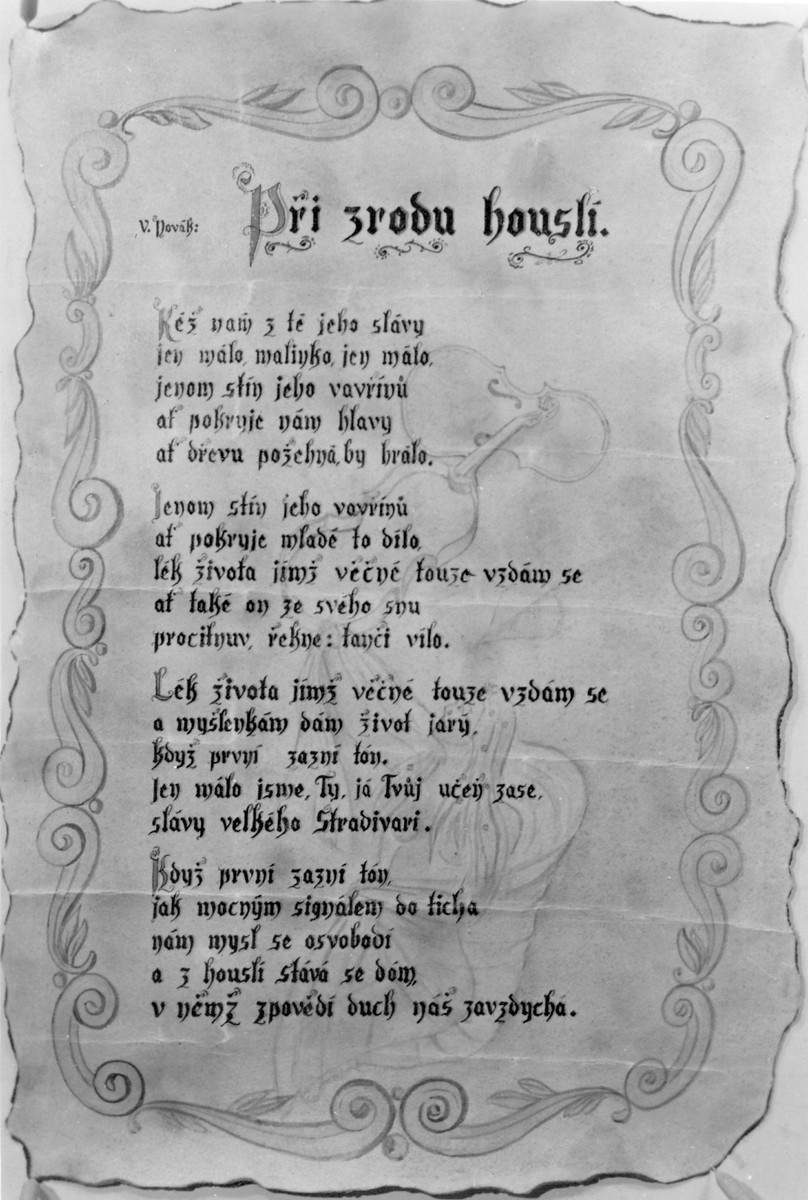 V. Novák:
Při zrodu houslí.
Kéž nam z té jeho slávy
jen málo, malinko, jen málo,
jenom stín jeho vavřínů
ať pokryje nám hlavy
ať dřevu požehná, by hrálo.
Jenom stín jeho vavřínů
ať pokryje mladé to dílo,
lék života jímž věčné touze vzdám se
ať také on ze svého snu
procitnuv, řekne: tančí vílo.
Lék života jímž věčné touze vzdám se
a myšlenkám dám život jarý,
když první zazní tón.
Jen málo jsme, Ty, já Tvůj učeň zase,
slávy velkého Stradivari.
Když první zazní tón,
jak mocným signálem do ticha
nám mysl se osvobodí
a z houslí stává se dóm,
v němž zpovědí duch náš zavzdychá.